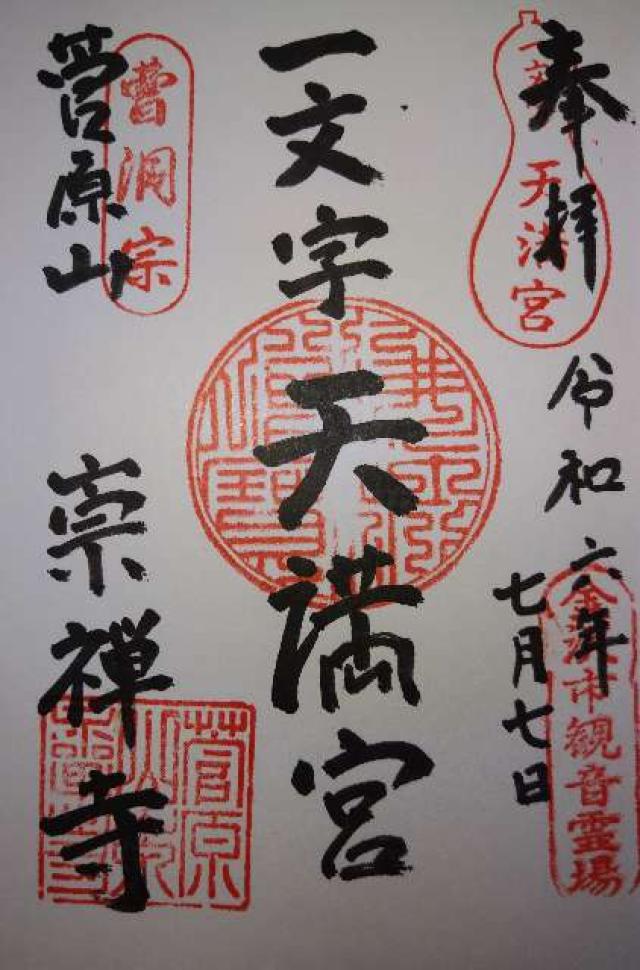 奉拝
天満宮
令和六年
七月七日
金沢市観音霊場
一文字天満宮
曹洞宗
菅原山
崇禅寺